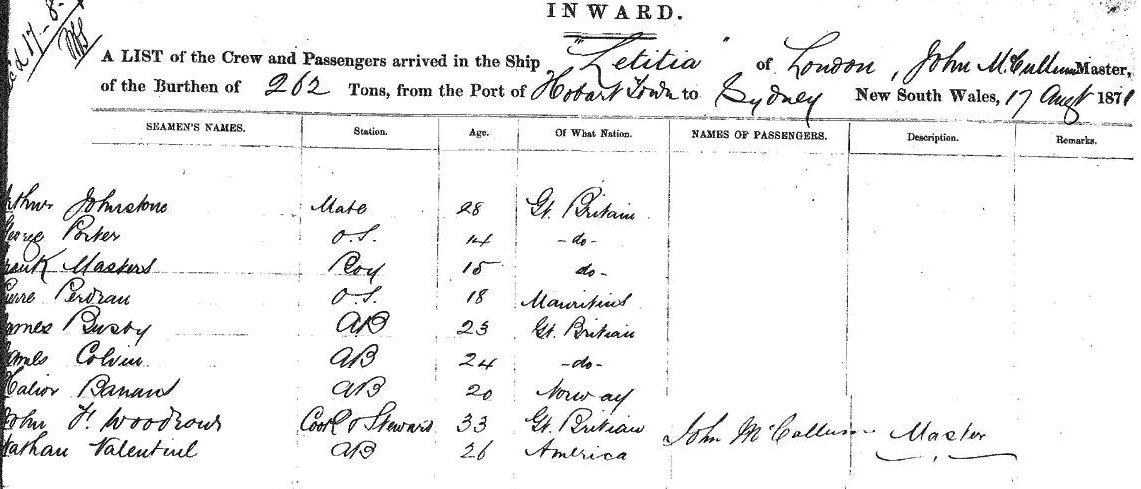 INWARD.
A LIST of the Crew and Passengers arrived in the Ship "Letitia" of London, John McCullum Master,
of the Burthen of 262 Tons, from the Port of Hobart Town to Sydney New South Wales, 17 Augt 1871
SEAMEN'S NAMES. Station. Age. Of What Nation. NAMES OF PASSENGERS. Description. Remarks.
rthur Johnstone Mate 28 Gt. Britain
eorge Porter O.S. 14 -do-
rank Masters Boy 15 do-
ierre Perdrau O.S. 18 Mauritius
ames Busby AB 23 Gt. Britian
ames Colvin AB 24 -do-
AB 20 Norway
John F. Woodrow Cook & Steward 33 Gt. Britian John McCallum Master
athan Valentine AB 26 America